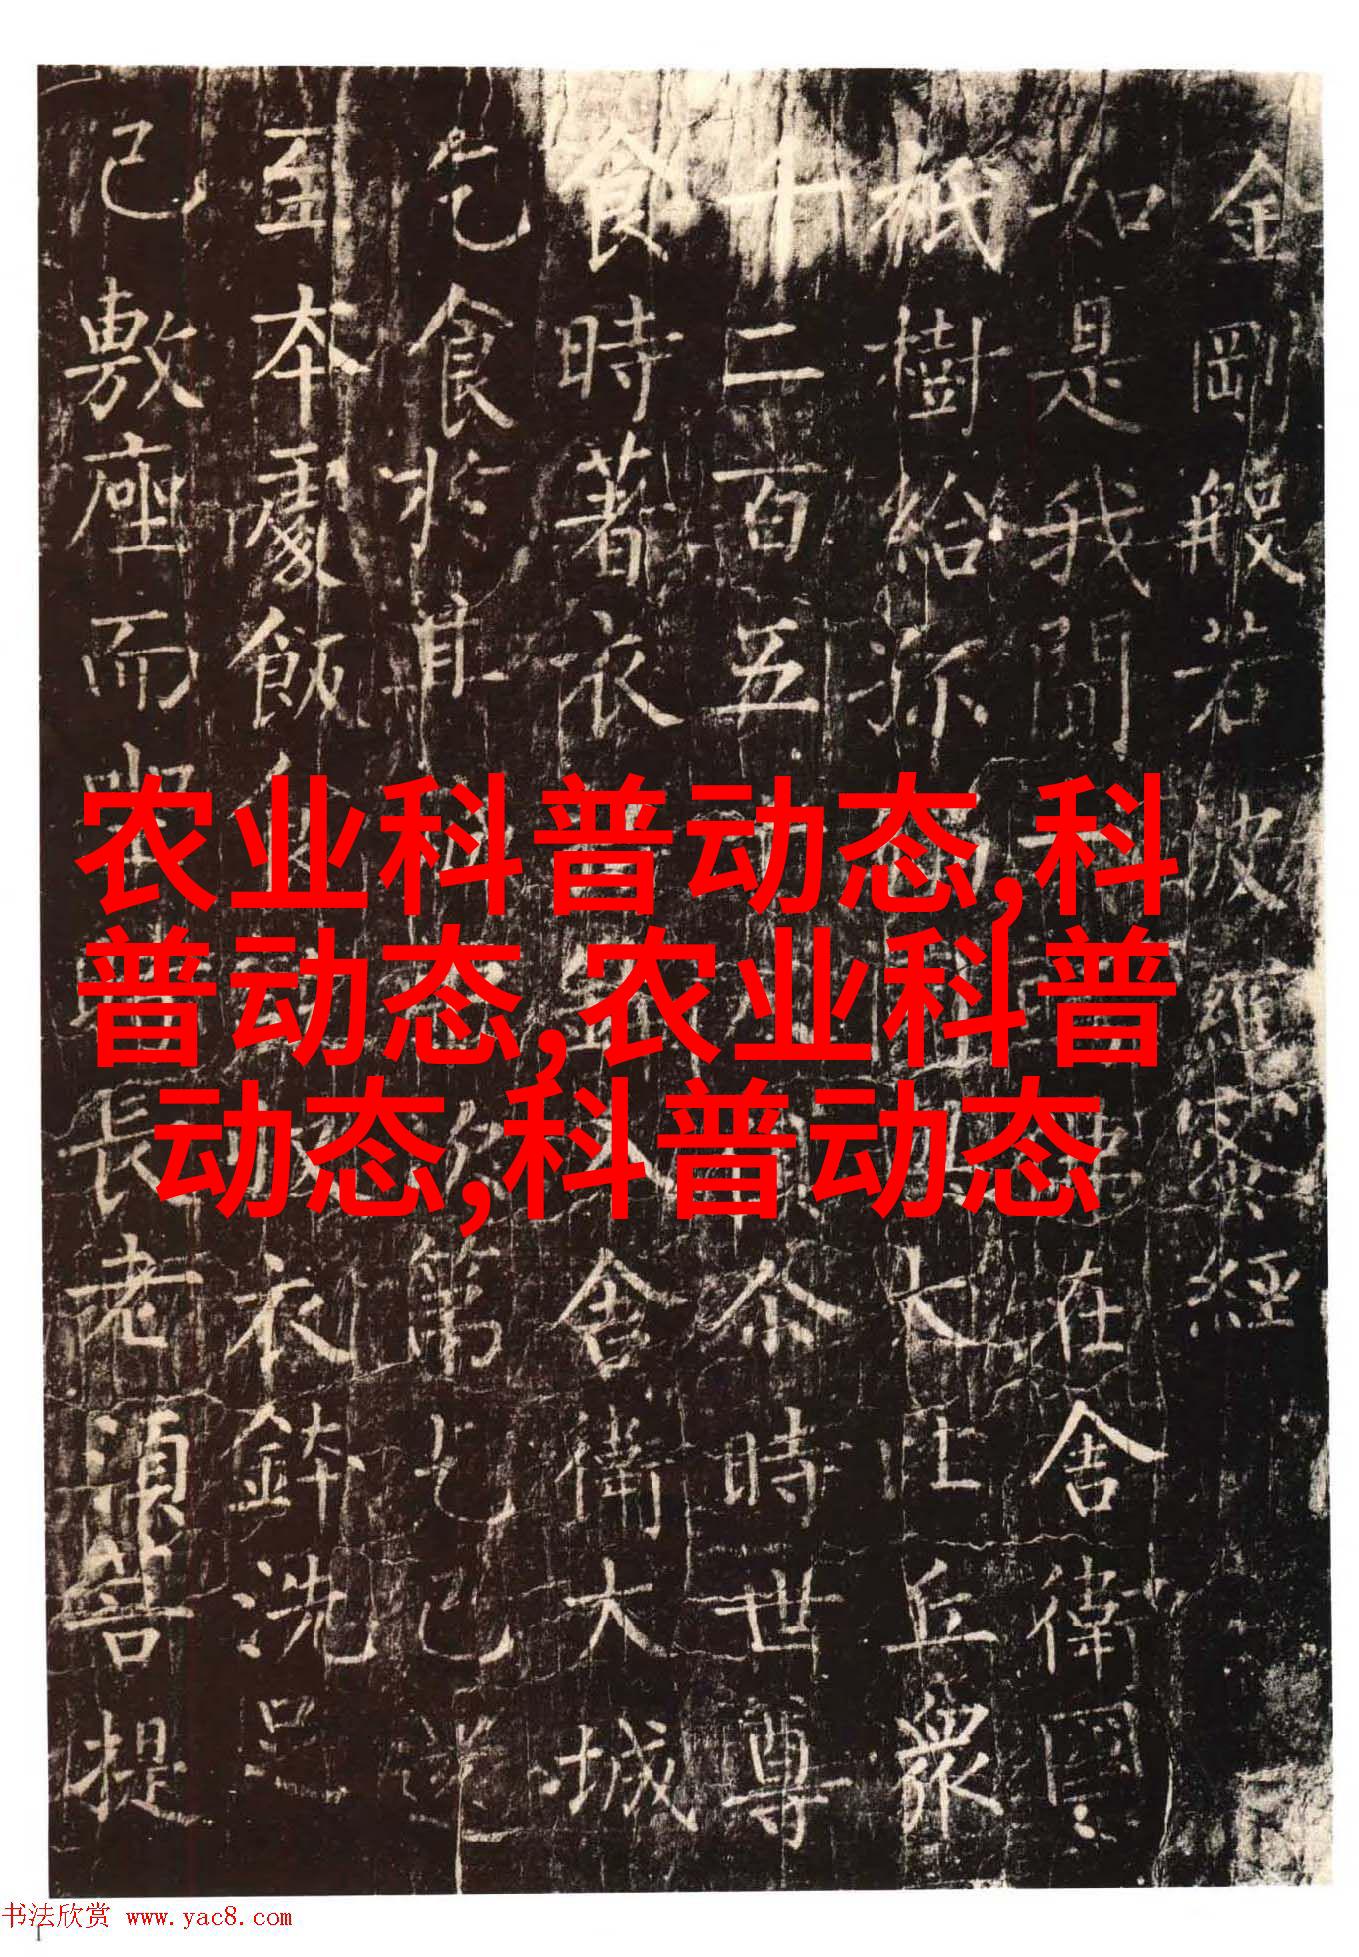 金剛般若波羅蜜經
如是我聞在舍衛國
祇樹給孤大比丘衆
千二百五尒時世尊
食時著衣舍衛大城
乞食於其次第乞已還
至本處飯衣鉢洗足
已敷座而坐長老須菩提
农业科普动态,科
普动态,农业科普
动态,科普动态
书法欣赏 www.yac8.com